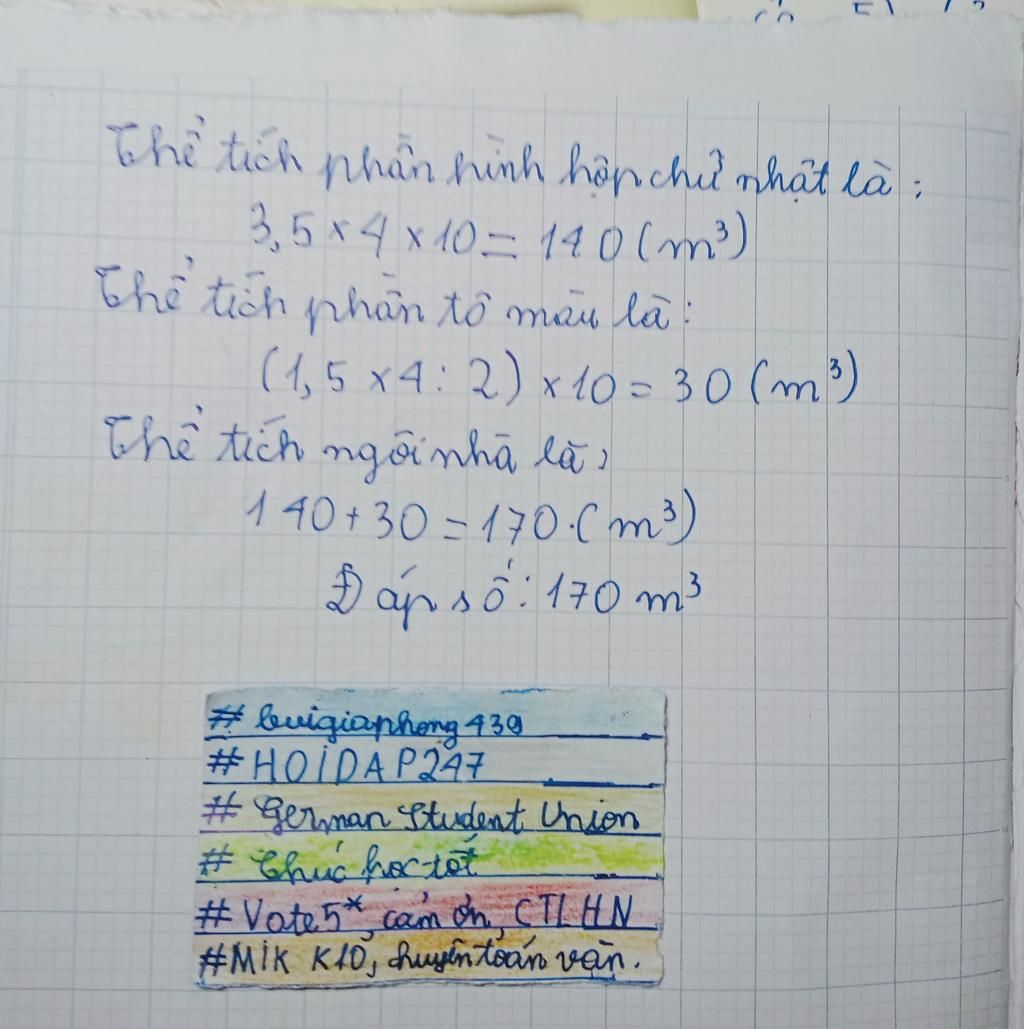 Thể tích phần hình hộp chữ nhật là:
3,5 x 4 x 10 = 140 (m³)
Thể tích phần tô màu là:
(1,5 x 4 : 2) x 10 = 30 (m³)
Thể tích ngôi nhà là,
140 + 30 = 170. (m³)
Đáp số: 170 m³
# buigiaphong439
# HOIDAP247
# German Student Union
# Chúc học tốt
# Vote 5*, cảm ơn, CTLHN
#MIK K10, chuyên toán văn.